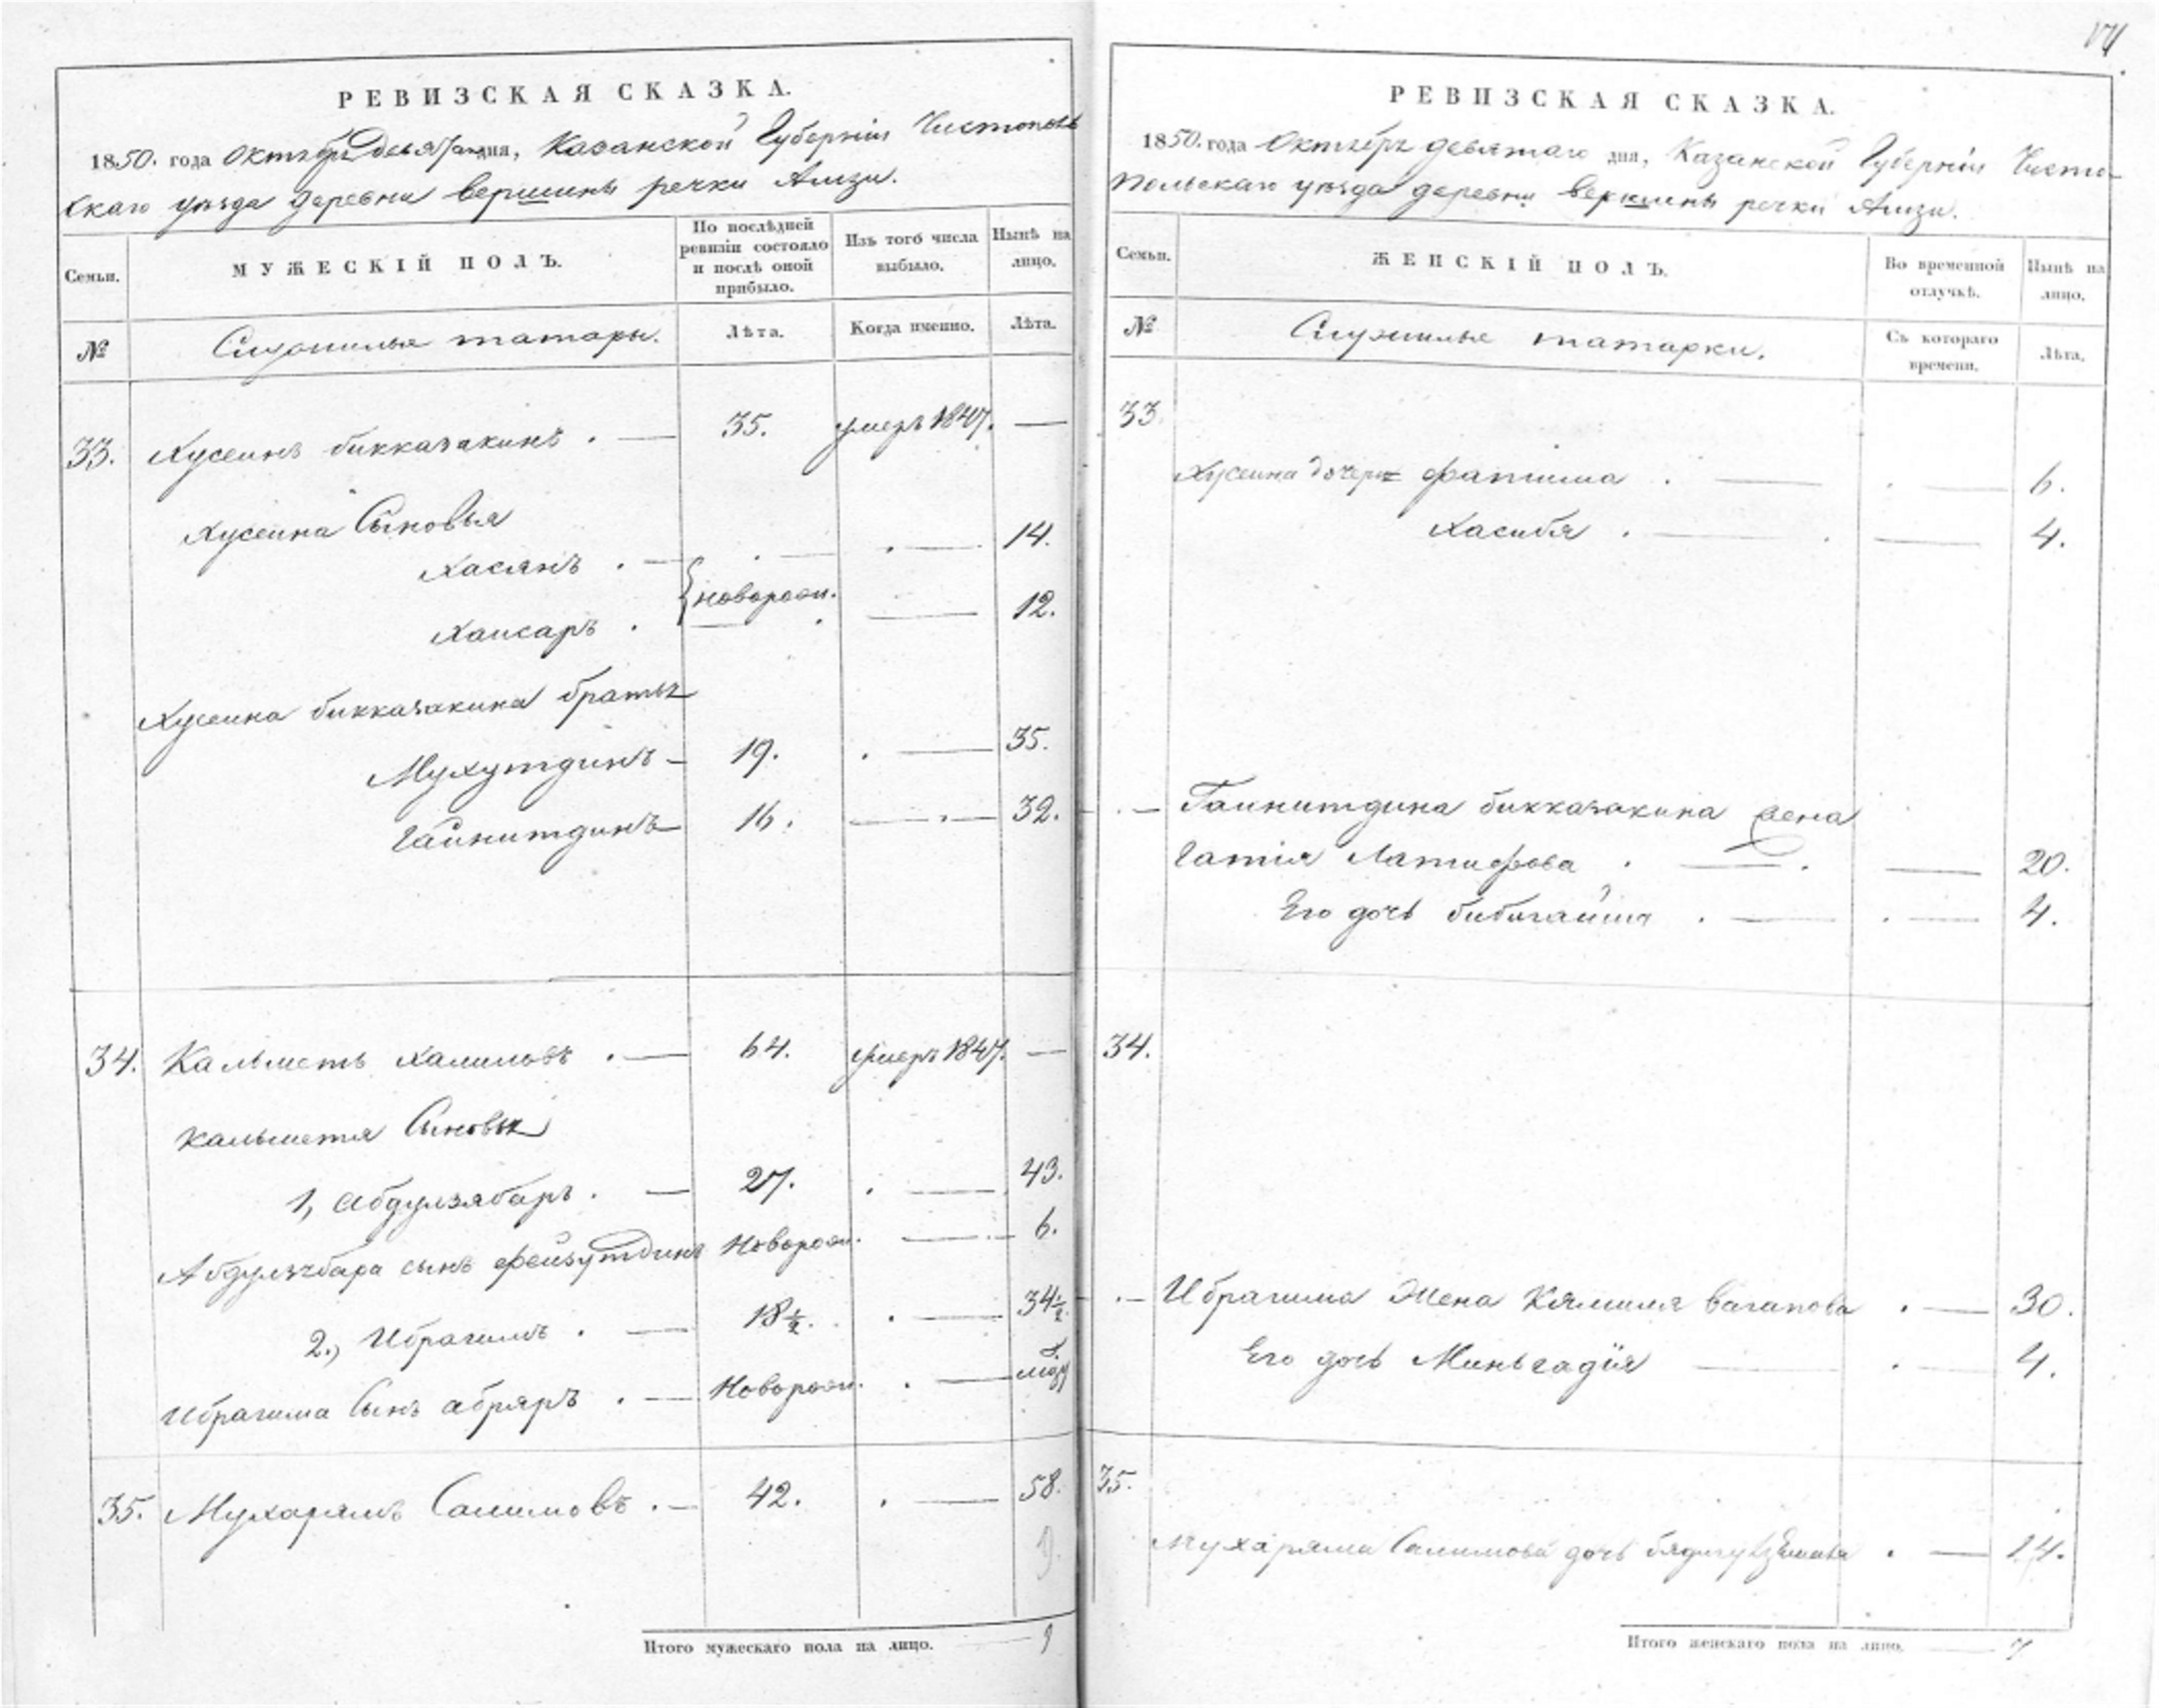 РЕВИЗСКАЯ СКАЗКА.
1850. года Октября девятаго дня, Казанской Губерніи Чистополь
скаго уѣзда деревни вершины речки Амзи.
Семьи.
МУЖЕСКІЙ ПОЛЪ.
По послѣдней ревизіи состояло и послѣ оной прибыло.
Изъ того числа выбыло.
Нынѣ на лицо.
№
Служилыя татары.
Лѣта.
Когда именно.
Лѣта.
33. Хусеинъ бикказакинъ . — 35. умеръ 1847. —
Хусеина Сыновья
Хасянъ . — . — . — 14.
новорож.
Хансаръ . — 12.
Хусеина бикказакина братья
Мухутдинъ — 19. . — 35.
Гайнитдинъ — 16. — . — 32.
34. Кальметь Халиловъ . — 64. умеръ 1847. —
Кальметя Сыновья
1, Абдулзябаръ . — 27. . — 43.
Абдулзябара сынъ Фейзутдинъ Новорож. — 6.
2., Ибрагимъ . — 18½. . — 34½.
Ибрагима Сынъ абряръ . — Новорож. . —
35. Мухарямъ Салимовъ . — 42. . — 58.
9.
Итого мужескаго пола на лицо. — 9
РЕВИЗСКАЯ СКАЗКА.
1850. года Октября девятаго дня, Казанской Губерніи Чисто-
польскаго уѣзда деревни вершины речки Амзи.
Семьи.
ЖЕНСКІЙ ПОЛЪ.
Во временной отлучкѣ.
Нынѣ на лицо.
№
Служилыя татарки.
Съ котораго времени.
Лѣта.
33.
Хусеина дочери Фатима . — . — 6.
Хасибя . — . — 4.
. — Гайнитдина бикказакина жена
Гатія Латифова . — . — 20.
Его дочь бибигайша . — . — 4.
34.
. — Ибрагима Жена Кямиля Вагапова . — 30.
Его дочь Миньгадія — . — 4.
35.
Мухаряма Салимова дочь . — 14.
Итого женскаго пола на лицо. — 7